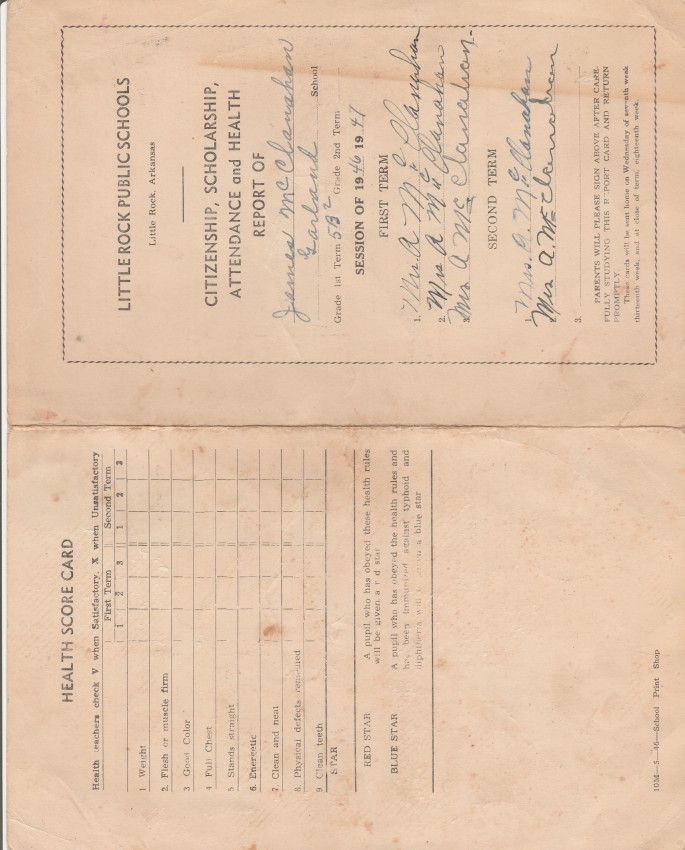 LITTLE ROCK PUBLIC SCHOOLS
Little Rock, Arkansas
CITIZENSHIP, SCHOLARSHIP,
ATTENDANCE and HEALTH
REPORT OF
James McClanahan
Garland School
Grade 1st Term 5B2 Grade 2nd Term
SESSION OF 1946 1947
FIRST TERM
1. Mrs. A. McClanahan
2. Mrs A McClanahan
3. Mrs A McClanahan.
SECOND TERM
1. Mrs. A. McClanahan
2. Mrs A. McClanahan
3.
PARENTS WILL PLEASE SIGN ABOVE AFTER CARE-
FULLY STUDYING THIS REPORT CARD AND RETURN
PROMPTLY.
These cards will be sent home on Wednesday of seventh week
thirteenth week, and at close of term, eighteenth week.
HEALTH SCORE CARD
Health teachers check V when Satisfactory, X when Unsatisfactory
First Term Second Term
1 2 3 1 2 3
1 Weight
2. Flesh or muscle firm
3 Good Color
4 Full Chest
5. Stands straight
6. Energetic
7. Clean and neat
8. Physical defects removed
9. Clean teeth
STAR
RED STAR A pupil who has obeyed these health rules
will be given a red star
BLUE STAR A pupil who has obeyed the health rules and
has been immunized against typhoid and
diphtheria will be given a blue star
10M—5—46—School Print Shop